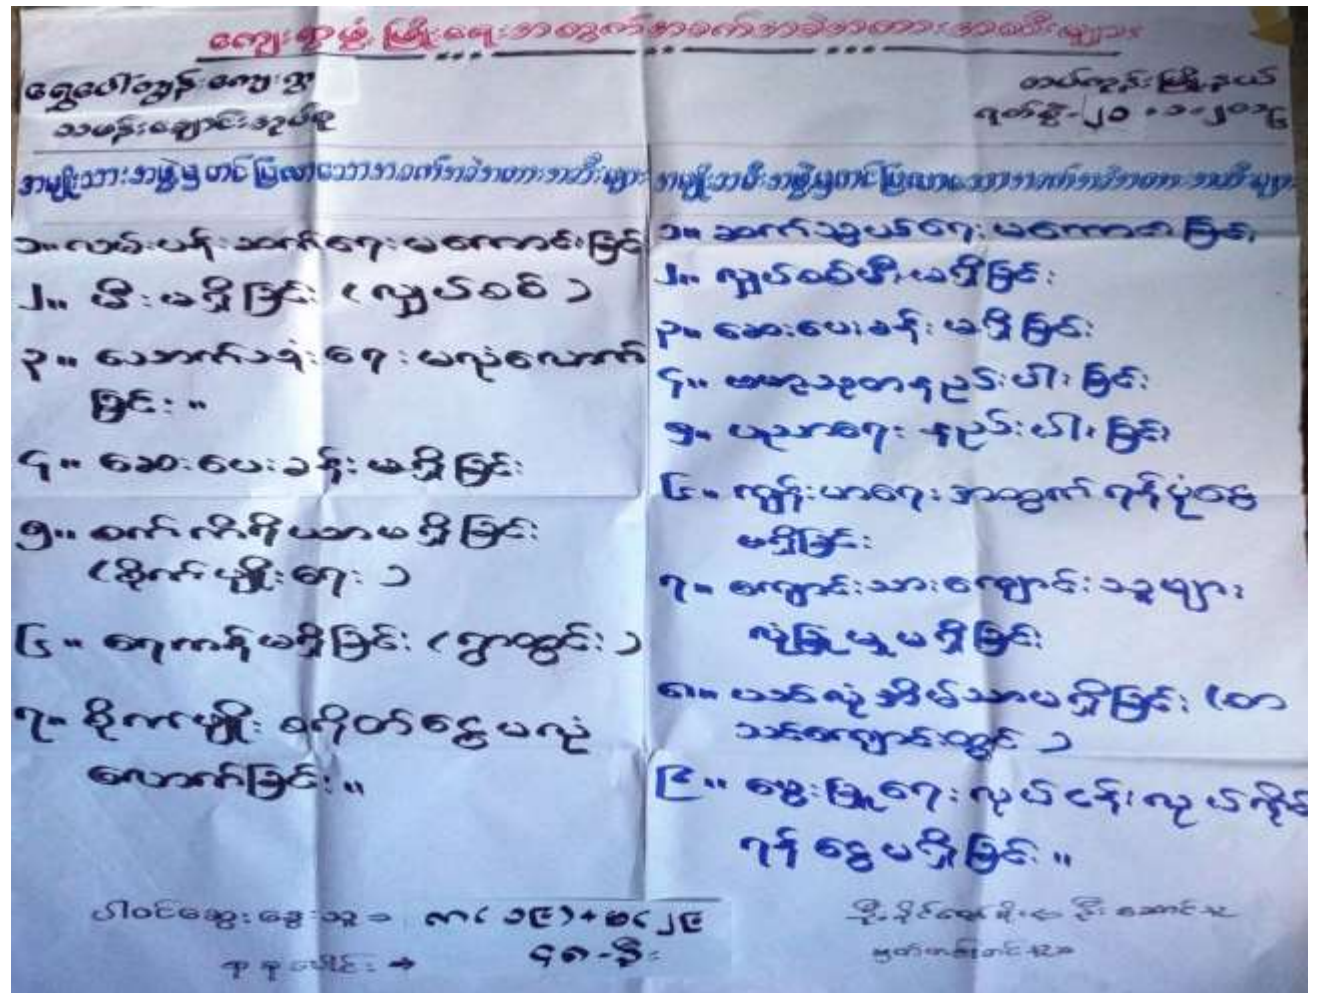 ကျေးရွာဖွံ့ဖြိုးရေးအတွက်အခက်အခဲအတားအဆီးများ
ရွှေပေါ်ကျွန်းကျေးရွာ
သဖန်းချောင်းအုပ်စု
တပ်ကုန်းမြို့နယ်
ရက်စွဲ-၂၀.၁.၂၀၁၆
အမျိုးသားအဖွဲ့မှတင်ပြလာသောအခက်အခဲအတားအဆီးများ
၁။ လမ်းပန်းဆက်ရေးမကောင်းခြင်း
၂။ မီးမရှိခြင်း (လျှပ်စစ်)
၃။ သောက်သုံးရေးမလုံလောက်
ခြင်း။
၄။ ဆေးပေးခန်းမရှိခြင်း
၅။ စက်ကိရိယာမရှိခြင်း
(စိုက်ပျိုးရေး)
၆။ ရေကန်မရှိခြင်း (ရွာတွင်း)
၇။ စိုက်ပျိုးစရိတ်ငွေမလုံ
လောက်ခြင်း။
အမျိုးသမီးအဖွဲ့မှတင်ပြလာသောအခက်အခဲအတားအဆီးများ
၁။ ဆက်သွယ်ရေးမကောင်းခြင်း
၂။ လျှပ်စစ်မီးမရှိခြင်း
၃။ ဆေးပေးခန်းမရှိခြင်း
၄။ ဗဟုသုတနည်းပါးခြင်း
၅။ ပညာရေးနည်းပါးခြင်း
၆။ ကျန်းမာရေးအတွက်ရန်ပုံငွေ
မရှိခြင်း
၇။ ကျောင်းသားကျောင်းသူများ
လုံခြုံမှုမရှိခြင်း
၈။ ယင်လုံအိမ်သာမရှိခြင်း (စာ
သင်ကျောင်းတွင်)
၉။ မွေးမြူရေးလုပ်ငန်းလုပ်ကိုင်
ရန်ငွေမရှိခြင်း။
ပါဝင်ဆွေးနွေးသူ = ကျ(၁၉)+မ(၂၉
စုစုပေါင်း → ၄၈-ဦး